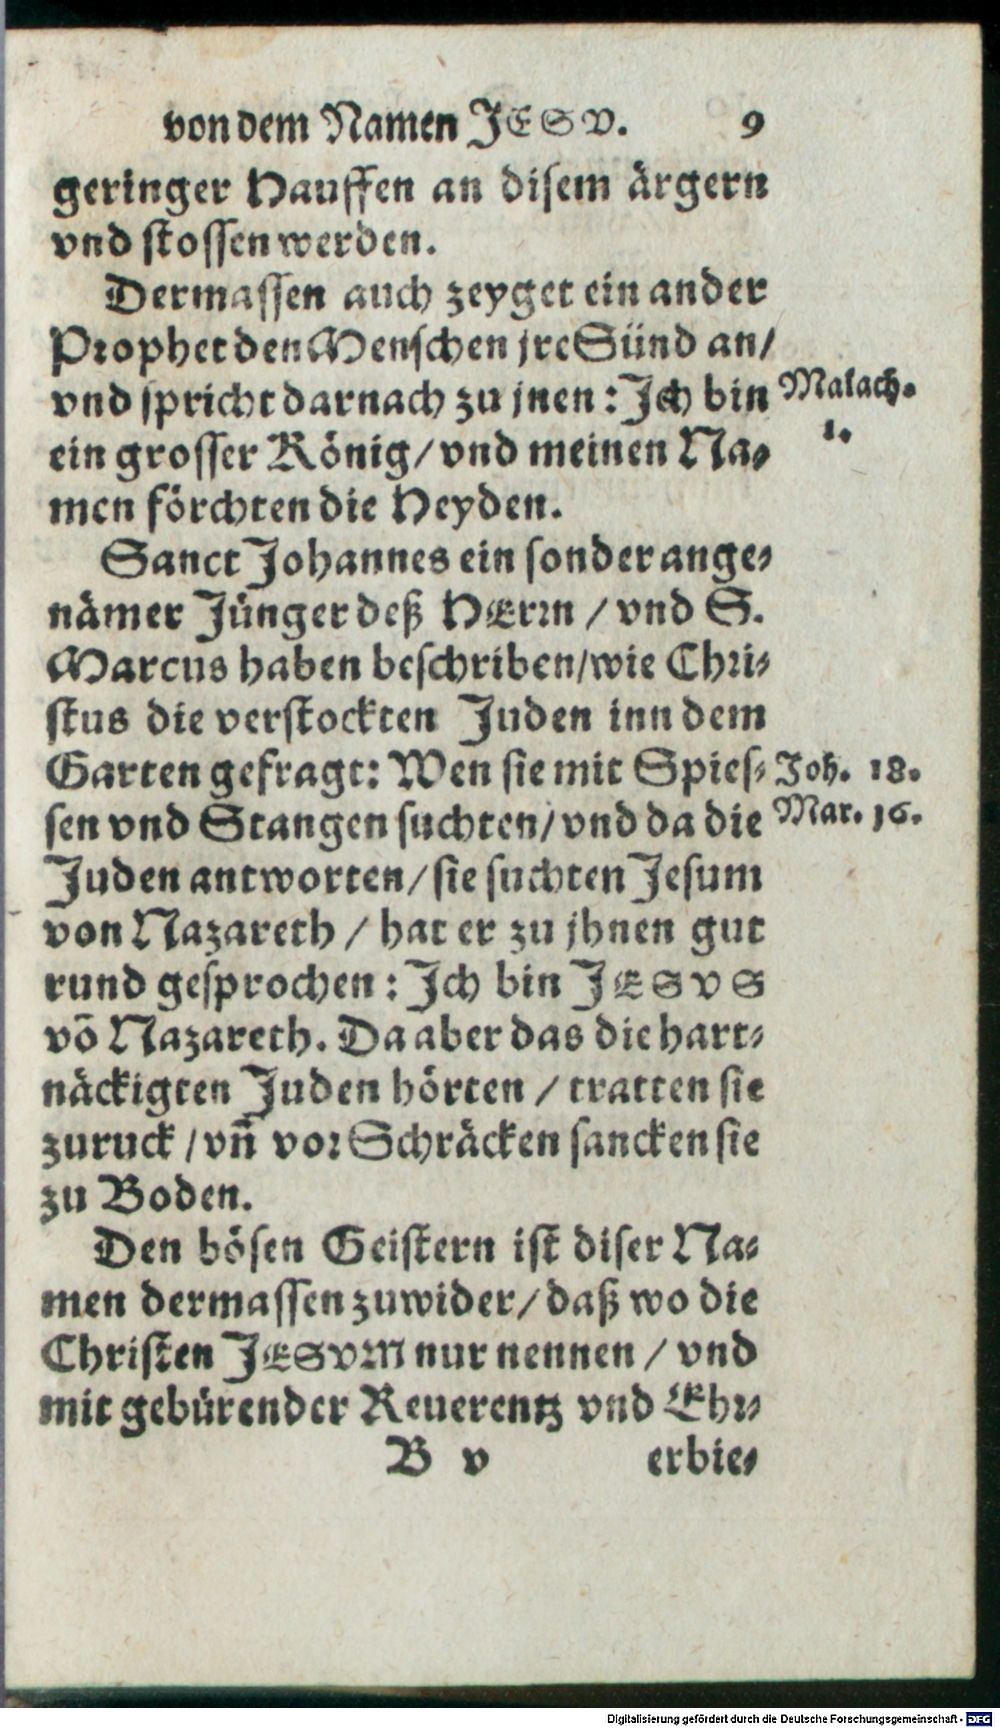 von dem Namen JESV. 9
geringer Hauffen an disem ärgern
vnd stossen werden.
Dermassen auch zeyget ein ander
Prophet den Menschen jre Sünd an/
vnd spricht darnach zu jnen: Jch bin
Malach.
1.
ein grosser König/ vnd meinen Na-
men förchten die Heyden.
Sanct Johannes ein sonder ange-
nämer Jünger deß HErrn / vnd S.
Marcus haben beschriben/ wie Chri-
stus die verstockten Juden inn dem
Garten gefragt: Wen sie mit Spies-
Joh. 18.
sen vnd Stangen suchten/ vnd da die
Mar. 16.
Juden antworten/ sie suchten Jesum
von Nazareth / hat er zu jhnen gut
rund gesprochen: Jch bin JESVS
võ Nazareth. Da aber das die hart-
näckigten Juden hörten / tratten sie
zuruck / vñ vor Schräcken sancken sie
zu Boden.
Den bösen Geistern ist diser Na-
men dermassen zuwider/ daß wo die
Christen JESVM nur nennen / vnd
mit gebürender Reuerentz vnd Ehr-
B v erbie-
Digitalisierung gefördert durch die Deutsche Forschungsgemeinschaft - DFG